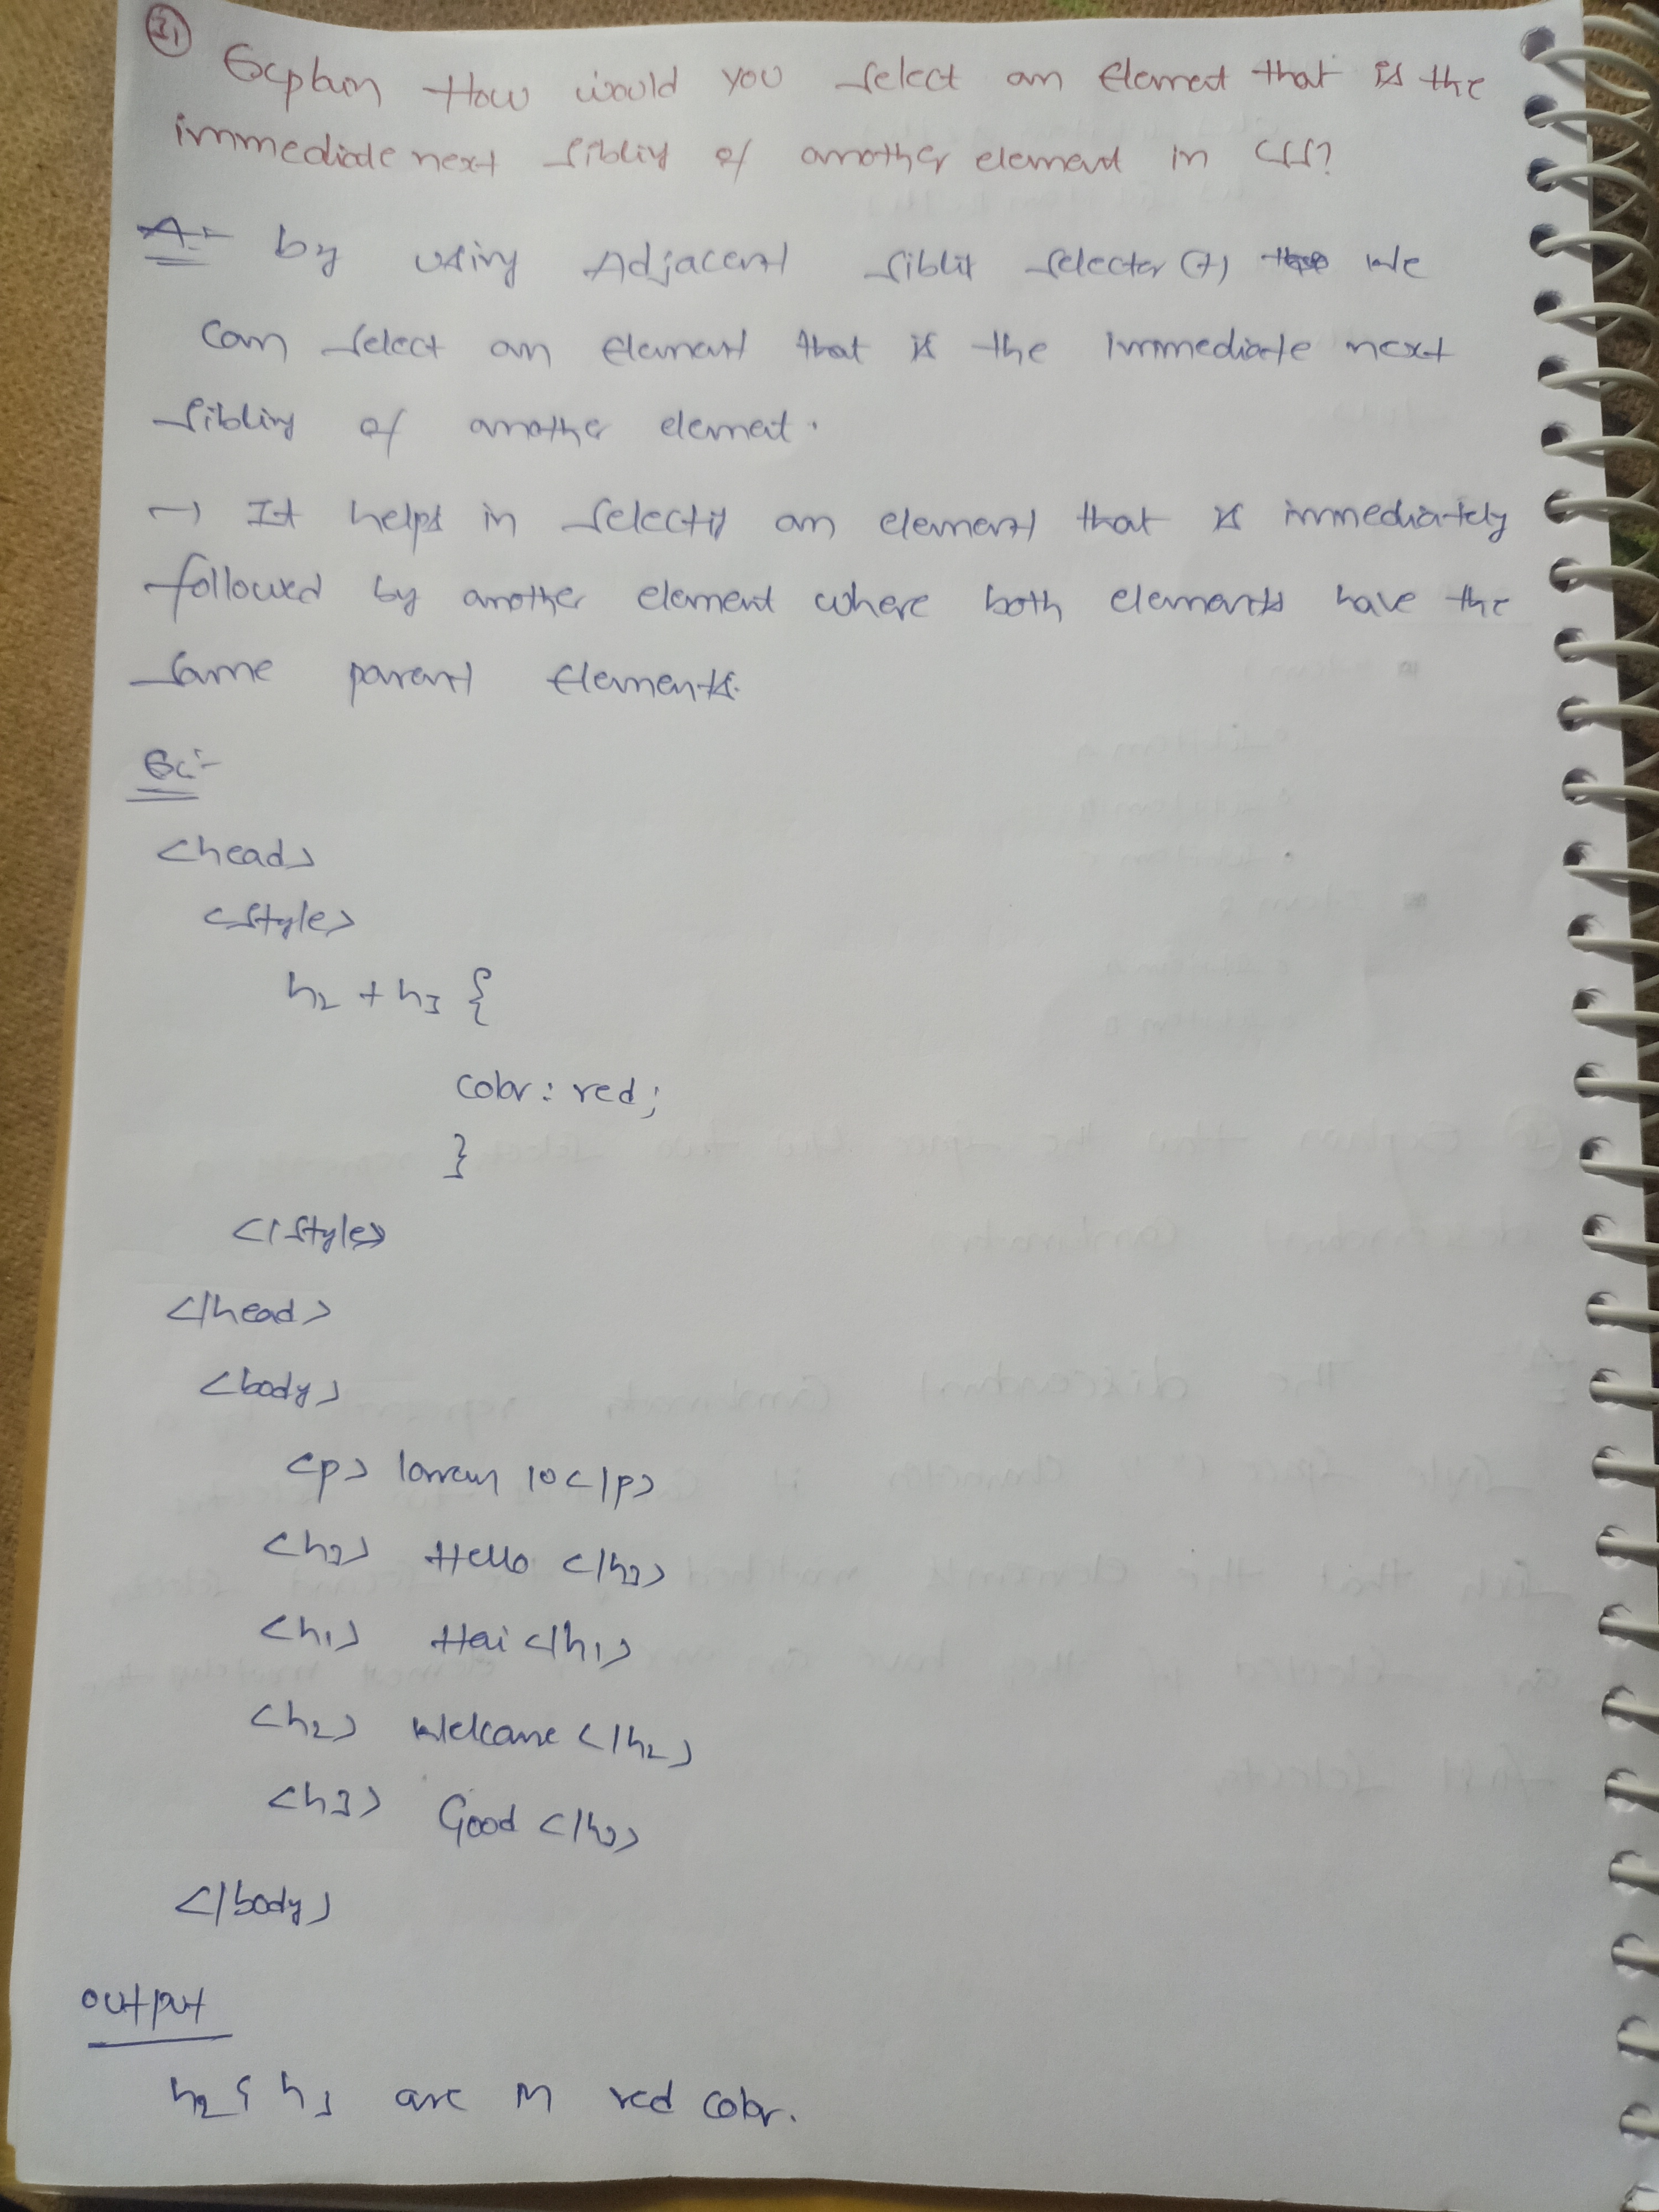 31
Explain How would you select an Element that is the
immediate next sibliy of another element in CSS?
A:- by using Adjacent siblit selecter (+) we
can select an element that is the immediate next
sibling of another element.
→ It helps in selectiy an element that is immediately
followed by another element where both elements have the
same parent Elements.
Ex:-
<head>
<style>
h2 + h3 {
color: red;
}
</style>
</head>
<body>
<p> lorem 10</p>
<h3> Hello </h3>
<h1> Hai </h1>
<h2> Welcome </h2>
<h3> Good </h3>
</body>
output
h2 & h3 are in red color.